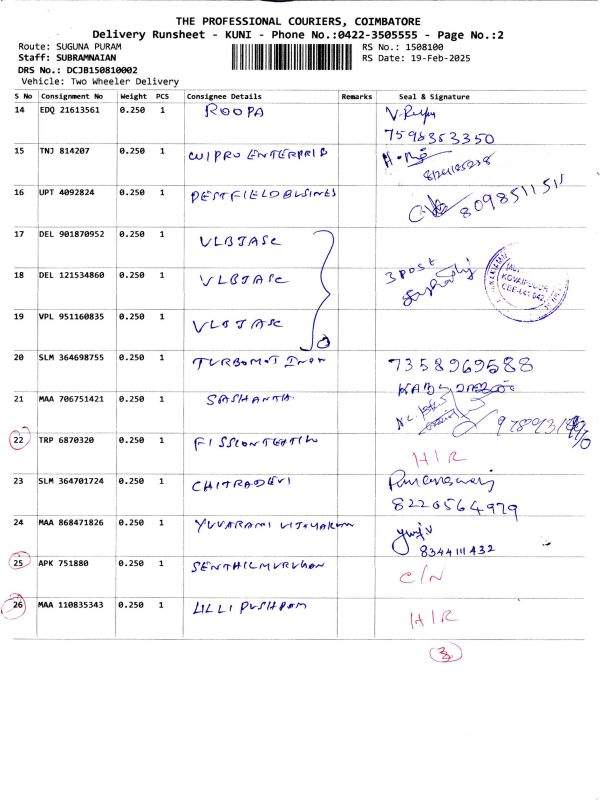 THE PROFESSIONAL COURIERS, COIMBATORE
Delivery Runsheet - KUNI - Phone No.:0422-3505555 - Page No.:2
Route: SUGUNA PURAM RS No.: 1508100
Staff: SUBRAMNAIAN RS Date: 19-Feb-2025
DRS No.: DCJB150810002
Vehicle: Two Wheeler Delivery
S No Consignment No Weight PCS Consignee Details Remarks Seal & Signature
14 EDQ 21613561 0.250 1 ROOPA
7598353350
15 TNJ 814207 0.250 1 WIPRO ENTERPRIS
16 UPT 4092824 0.250 1 PESTFIELD BUSINES
8098511511
17 DEL 901870952 0.250 1 VLBJASC
18 DEL 121534860 0.250 1 VLBJASC 3 POST
KOVAIPUDUR
CBE-641 042
19 VPL 951160835 0.250 1 VLBJASC
20 SLM 364698755 0.250 1 7358969588
21 MAA 706751421 0.250 1 SASHANTH
22 TRP 6870320 0.250 1 H/R
23 SLM 364701724 0.250 1 CHITRADEVI
8220564979
24 MAA 868471826 0.250 1 YUVARANI
8344111432
25 APK 751880 0.250 1 SENTHILMURUGAN C/N
26 MAA 110835343 0.250 1 LILLI PUSHPAM H/R
3